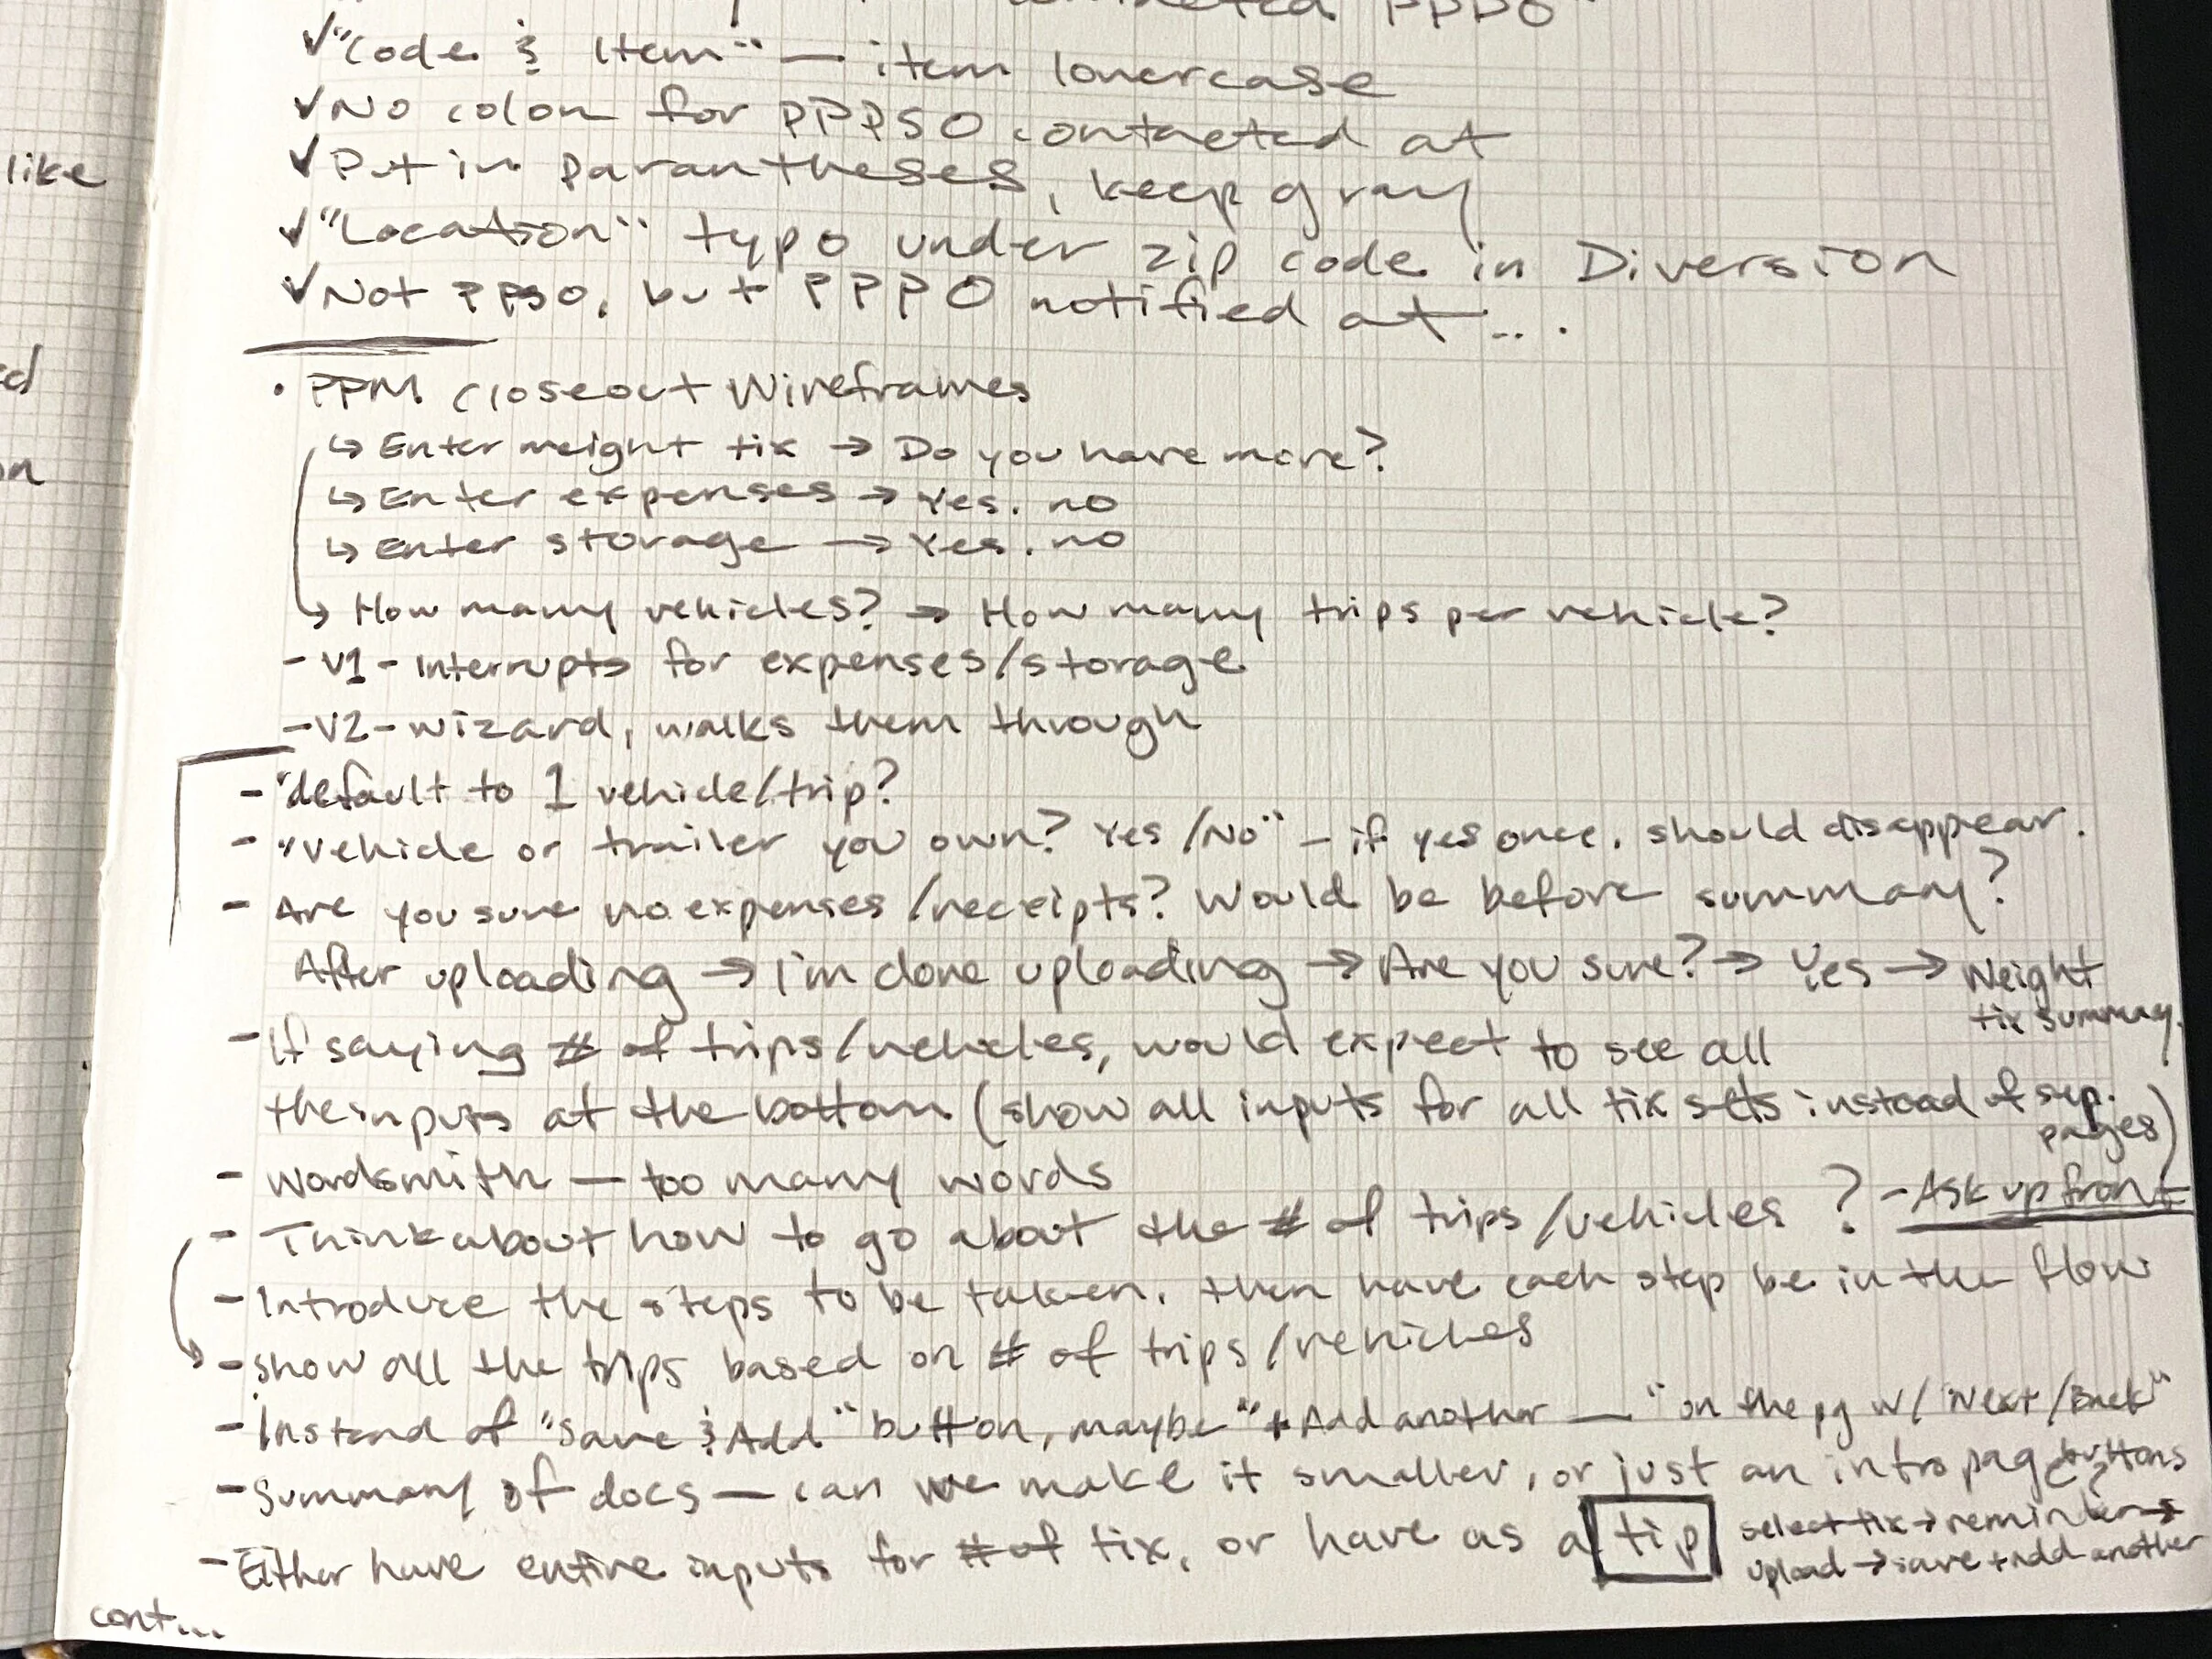 contacted PPPO"
✓ "Code & Item" — item lowercase
✓ No colon for PPPSO contacted at
✓ Put in parantheses, keep gray
✓ "Location" typo under zip code in Diversion
✓ Not PPSO, but PPPO notified at...
like
• PPM closeout Wireframes
↳ Enter weight tix → Do you have more?
↳ Enter expenses → Yes. no
on
↳ Enter storage → Yes. no
↳ How many vehicles? → How many trips per vehicle?
- V1 - Interrupts for expenses/storage
- V2 - wizard, walks them through
- "default to 1 vehicle/trip?
- "vehicle or trailer you own? Yes/No" - if yes once, should disappear.
- Are you sure no expenses/receipts? Would be before summary?
After uploading → I'm done uploading → Are you sure? → Yes → Weight
tix summary.
- If saying # of trips/vehicles, would expect to see all
the inputs at the bottom (show all inputs for all tix sets instead of sep.
pages)
- Wordsmith — too many words
- Think about how to go about the # of trips/vehicles? - Ask up front
- Introduce the steps to be taken, then have each step be in the flow
- show all the trips based on # of trips/vehicles
- Instead of "Save & Add" button, maybe "+ Add another — " on the pg w/ Next/Back"
buttons
- Summary of docs — can we make it smaller, or just an intro page?
- Either have entire inputs for # of tix, or have as a tip
select tix → reminder →
upload → save + add another
cont...